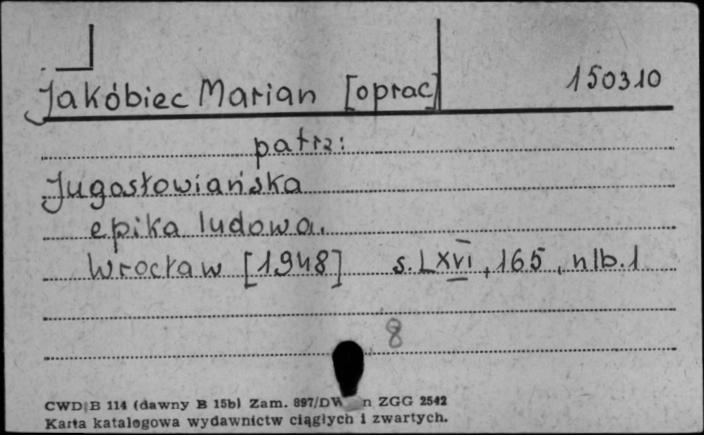 Jakóbiec Marian [oprac] 150310
patrz:
Jugosłowiańska
epika ludowa.
Wrocław [1948] s. LXVI, 165, nlb. 1
8
CWD B 114 (dawny B 15b) Zam. 897/DW n ZGG 2542
Karta katalogowa wydawnictw ciągłych i zwartych.